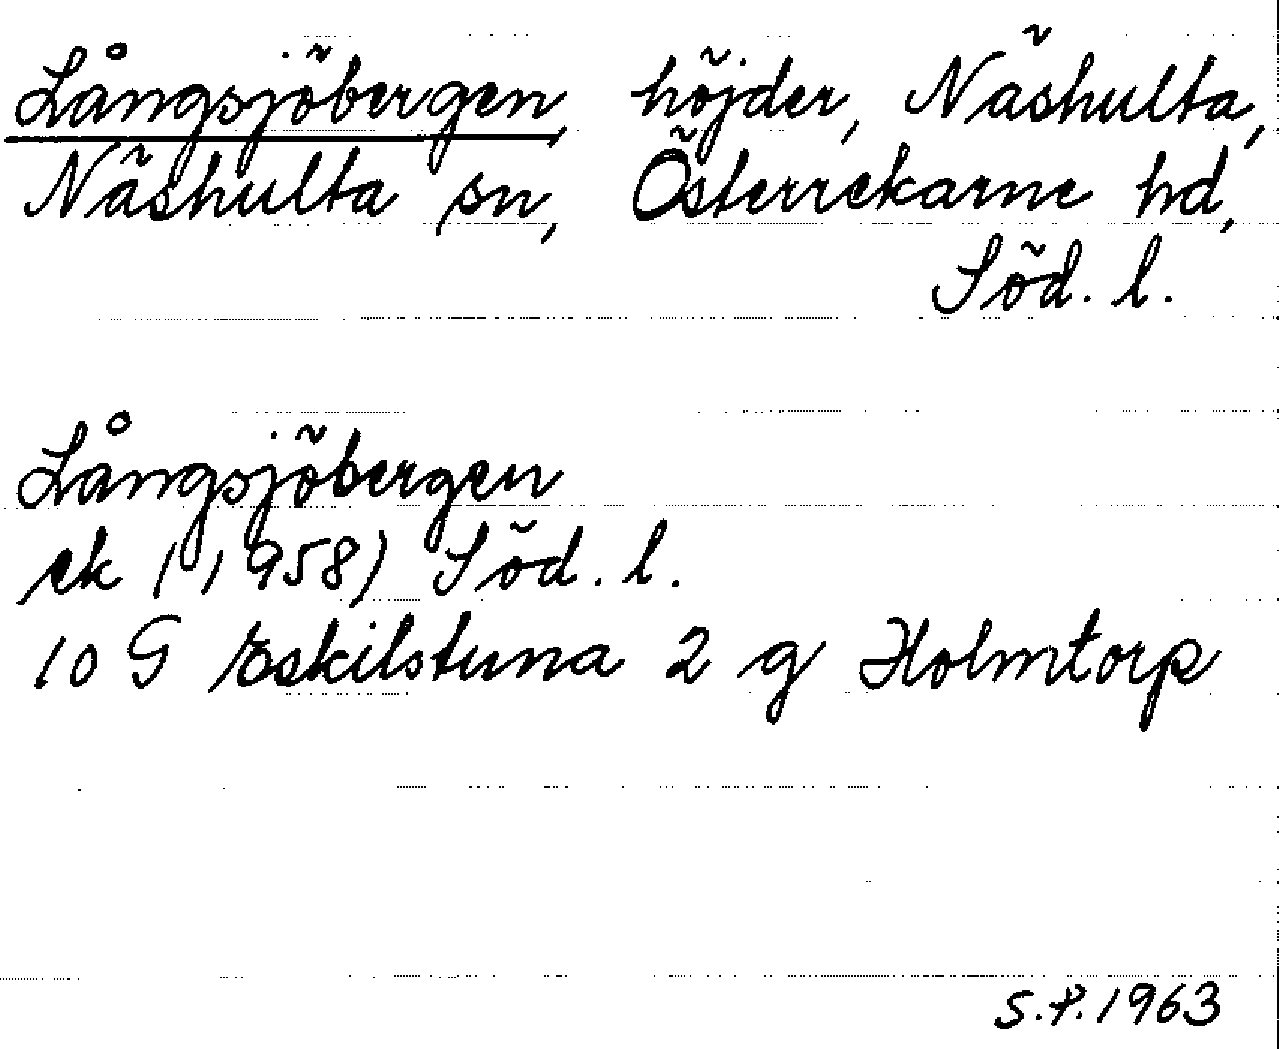 Långsjöbergen, höjder, Näshulta,
Näshulta sn, Österrekarne hd,
Söd. l.
Långsjöbergen
ek (1958) Söd. l.
10 G Eskilstuna 2 g Holmtorp
S.P. 1963